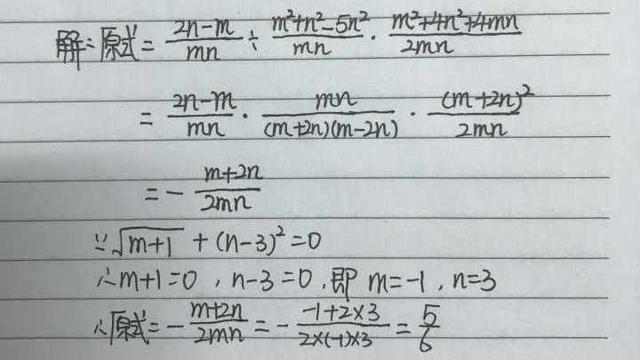 解:原式= (2n-m)/(mn) ÷ (m²+n²-5n²)/(mn) · (m²+4n²+4mn)/(2mn)
= (2n-m)/(mn) · (mn)/((m+2n)(m-2n)) · (m+2n)²/(2mn)
= - (m+2n)/(2mn)
∵√(m+1) + (n-3)²=0
∴m+1=0, n-3=0,即 m=-1, n=3
∴原式= - (m+2n)/(2mn) = - (-1+2×3)/(2×(-1)×3) = 5/6